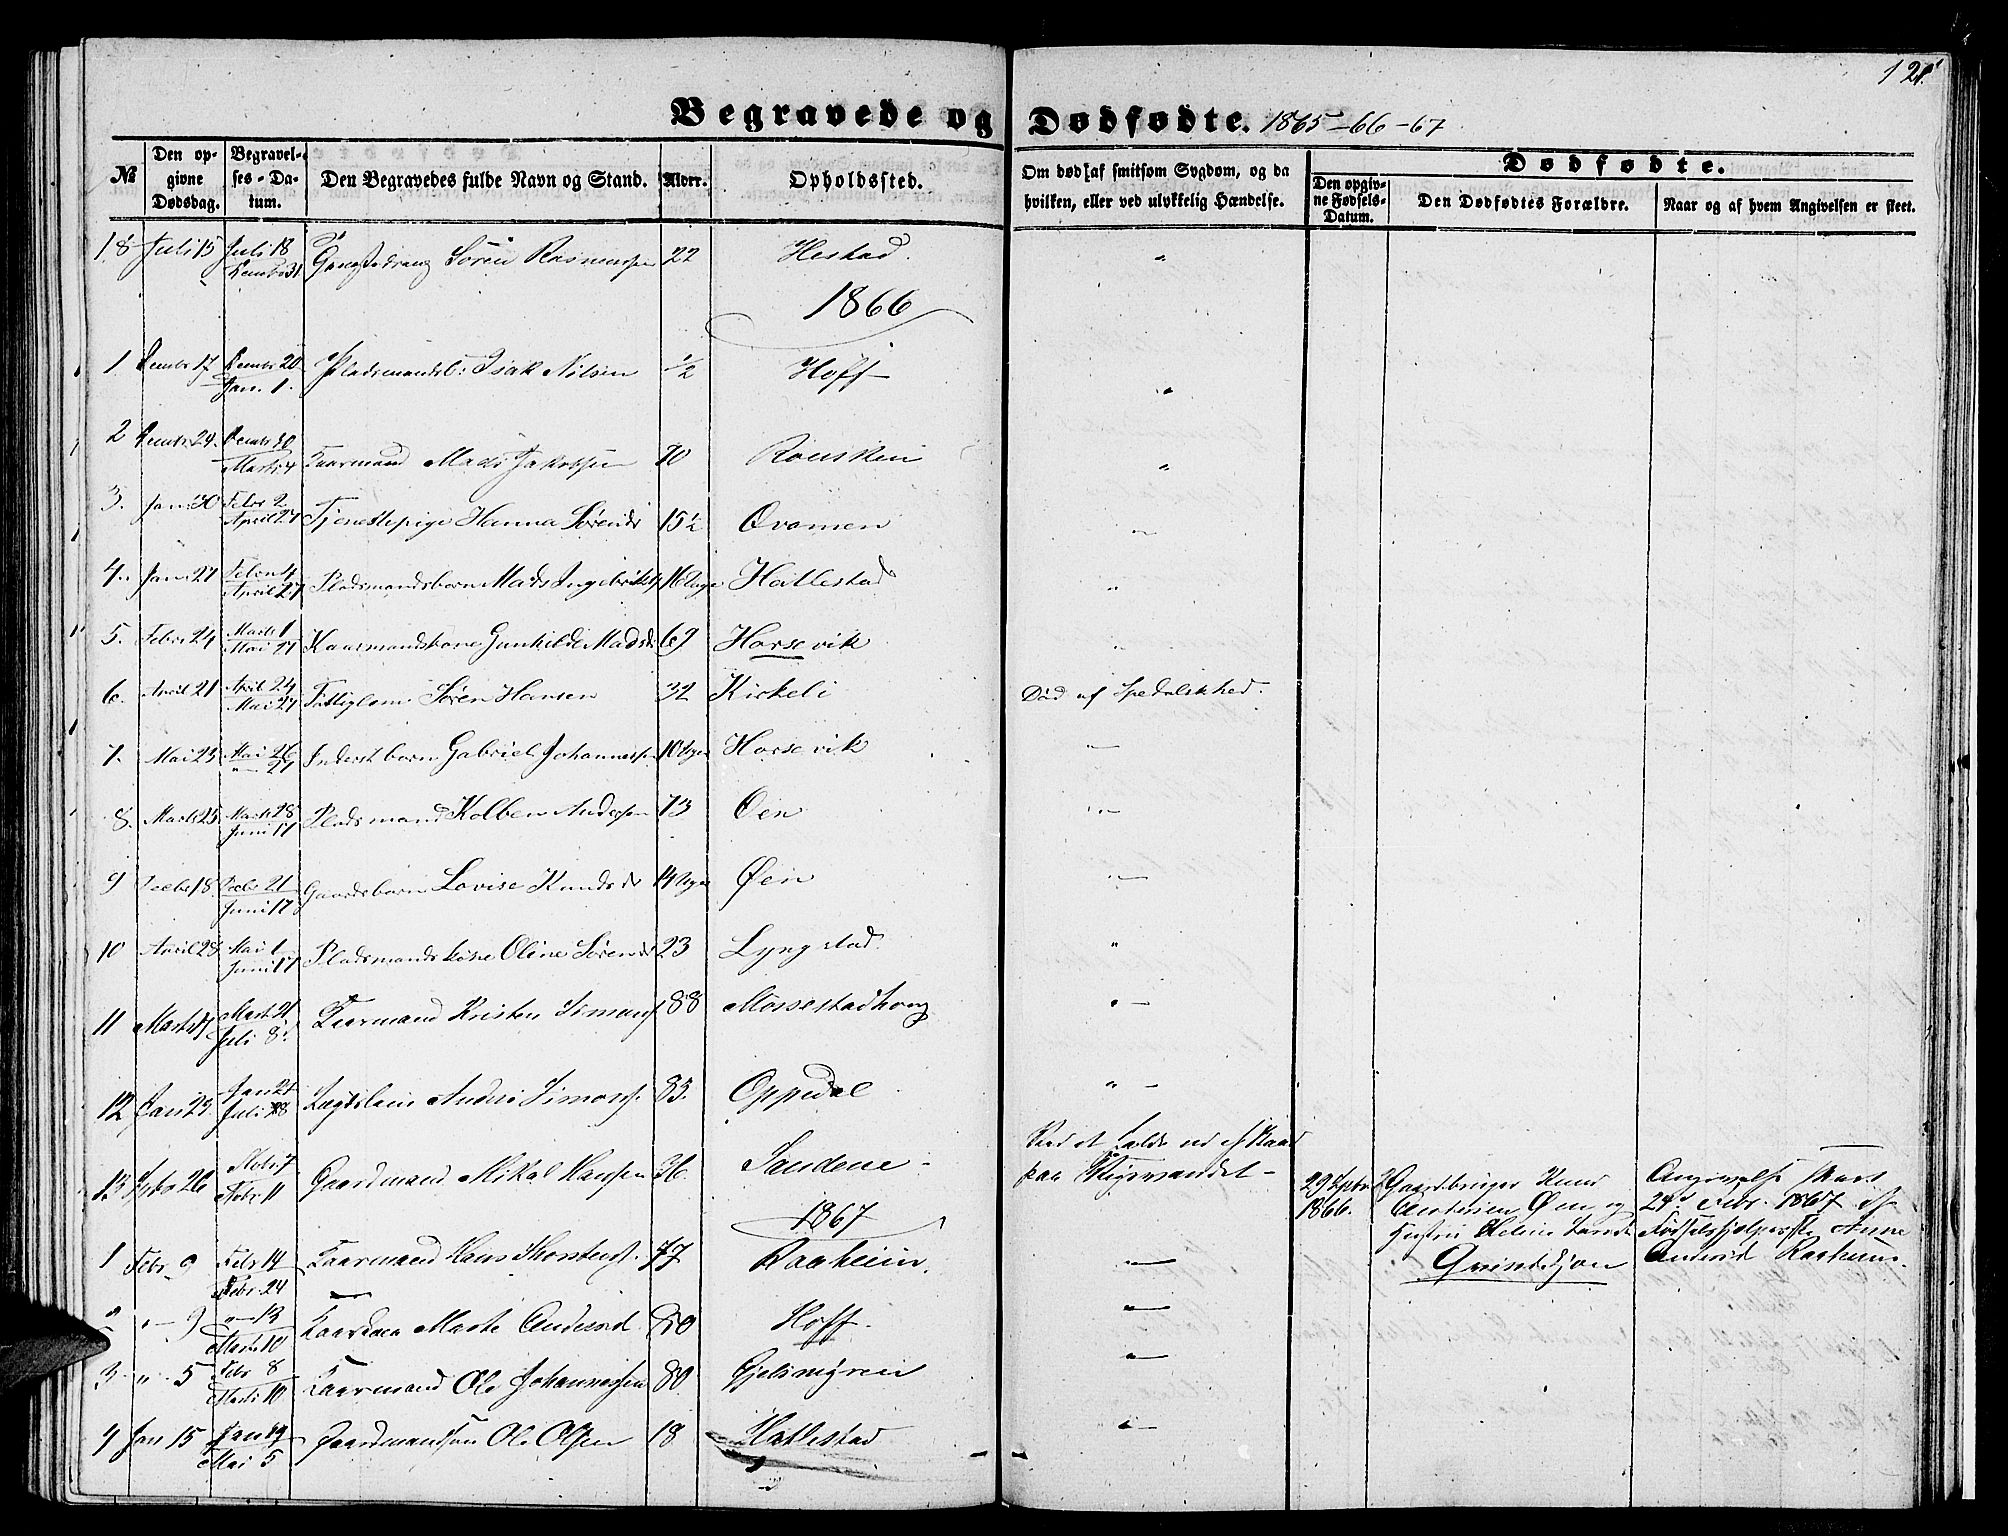 121.
Begravede og Dødfødte. 1865-66-67
№
Den opgivne Dødsdag.
Begravelses-Datum.
Den Begravedes fulde Navn og Stand.
Alder.
Opholdssted.
Om død af smitsom Sygdom, og da hvilken, eller ved ulykkelig Hændelse.
Dødfødte.
Den opgivne Fødsels-Datum.
Den Dødfødtes Forældre.
Naar og af hvem Angivelsen er skeet.
18 Juli 15 Juli 18 Søren Rasmussen 22 Hestad. "
1866
1 Decmbr 17 Decmbr 20 / Jan. 1. Pladsmandsb: Isak Nilsen ½ Hoff "
2 Decmbr 24. Decmbr 30 / Marts 4 Kaarmand Mads Jakobsen 90 "
3. Jan: 30 Febr 2 / April 27 Tjenestepige Hanna Sørensd 15½ Qvamen "
4. Jan: 27 Febr 4 / April 27 Pladsmandsbarn Mads Ingebrikts 16 Uger Hatlestad "
5. Febr 24 Marts 1 / Mai 27 Kaarmandskone Gunhilde Madsd 69 Horsevik "
6. April 21 April 24 / Mai 27 Fattiglem Søren Hansen 32 Kirkeli Død af Spedalskhed.
7. Mai 23 Mai 26 / " 27 Inderstbarn Gabriel Johannessen 10 Uger Horsevik "
8. Marts 25 Marts 28 / Juni 17 Pladsmand Kolben Andersen 73 Øen "
9 Decbr 18. Decbr 21 / Juni 17 Gaardsbarn Lovise Knudsdr 14 Uger Øen "
10 April 28 Mai 1 / Juni 17 Pladsmandskone Oline Sørensd 23 Lyngstad. "
11 Marts Marts 21 / Juli 8. Kaarmand Kristen Simons 88 Mossestadhoug "
12 Jan 23. Jan / Juli Lægdslem Anders Simons. 85. Oppedal "
13 26 / Febr 11 Gaardmand Mikal Hanssen 36. Sandene
paa
29 Septbr 1866. Gaardbruger Knud Andersen Øen og Hustru Helene
Qvindekjøn
Angivelse skeet 24 Febr. 1867 af Fødselshjelpersken Anne Andersd Raaheim.
1867
1 Febr 9 Febr 14 / Febr. 24 Kaarmand Hans Thorstens. 77 Raaheim. "
2 " 9 " 13 / Marts 10 Marte Andersd. Hoff. "
3 " 5 Febr 8 / Marts 10 Kaarmand Ole Johannessen 80 Gjelsvigren "
4 Jan 15 Jan 19 / Mai 5 Gaardmandssøn Ole Olsen 18 Hatlestad "